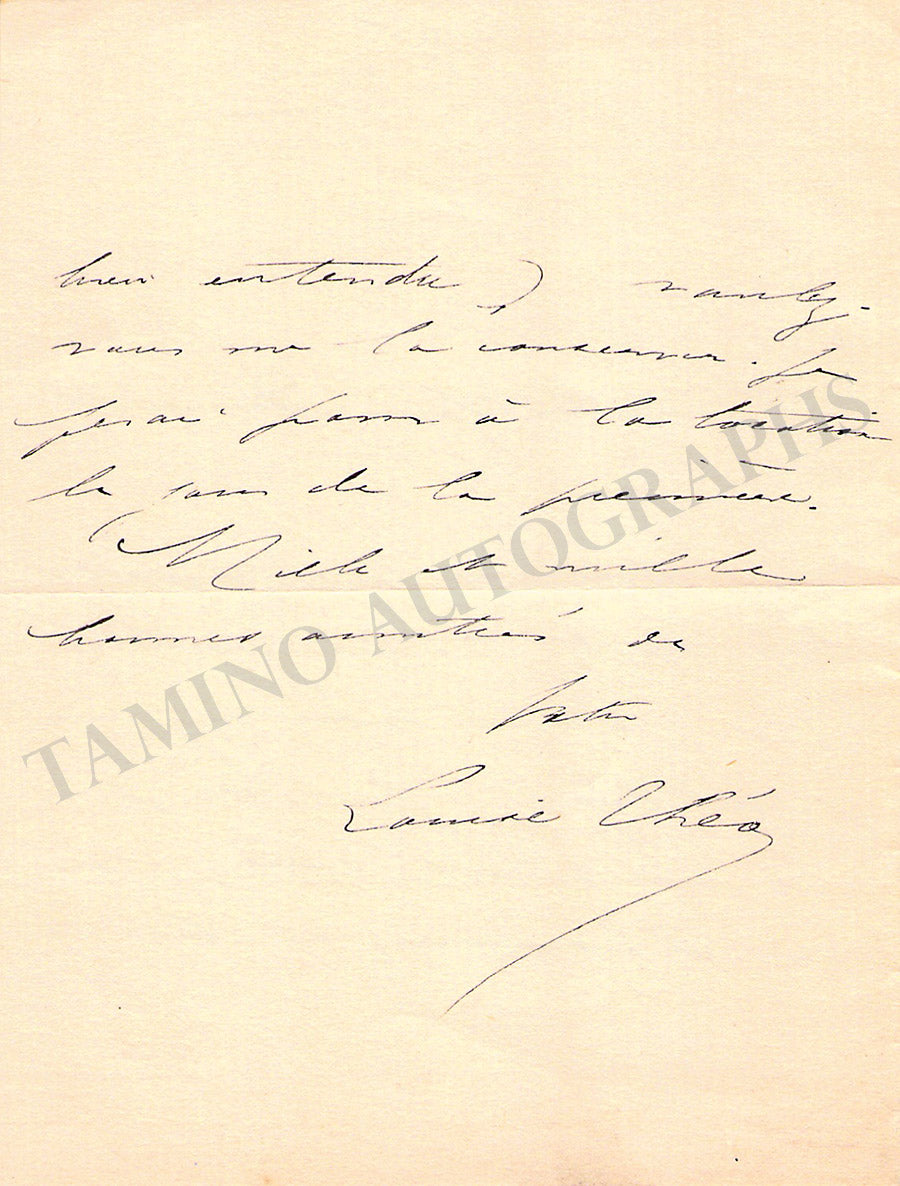 bien entendu) voulez-
vous me la conserver. Je
ferai passer à la location
le jour de la première.
Mille et mille
bonnes amitiés de
votre
Louise Théo
TAMINO AUTOGRAPHS